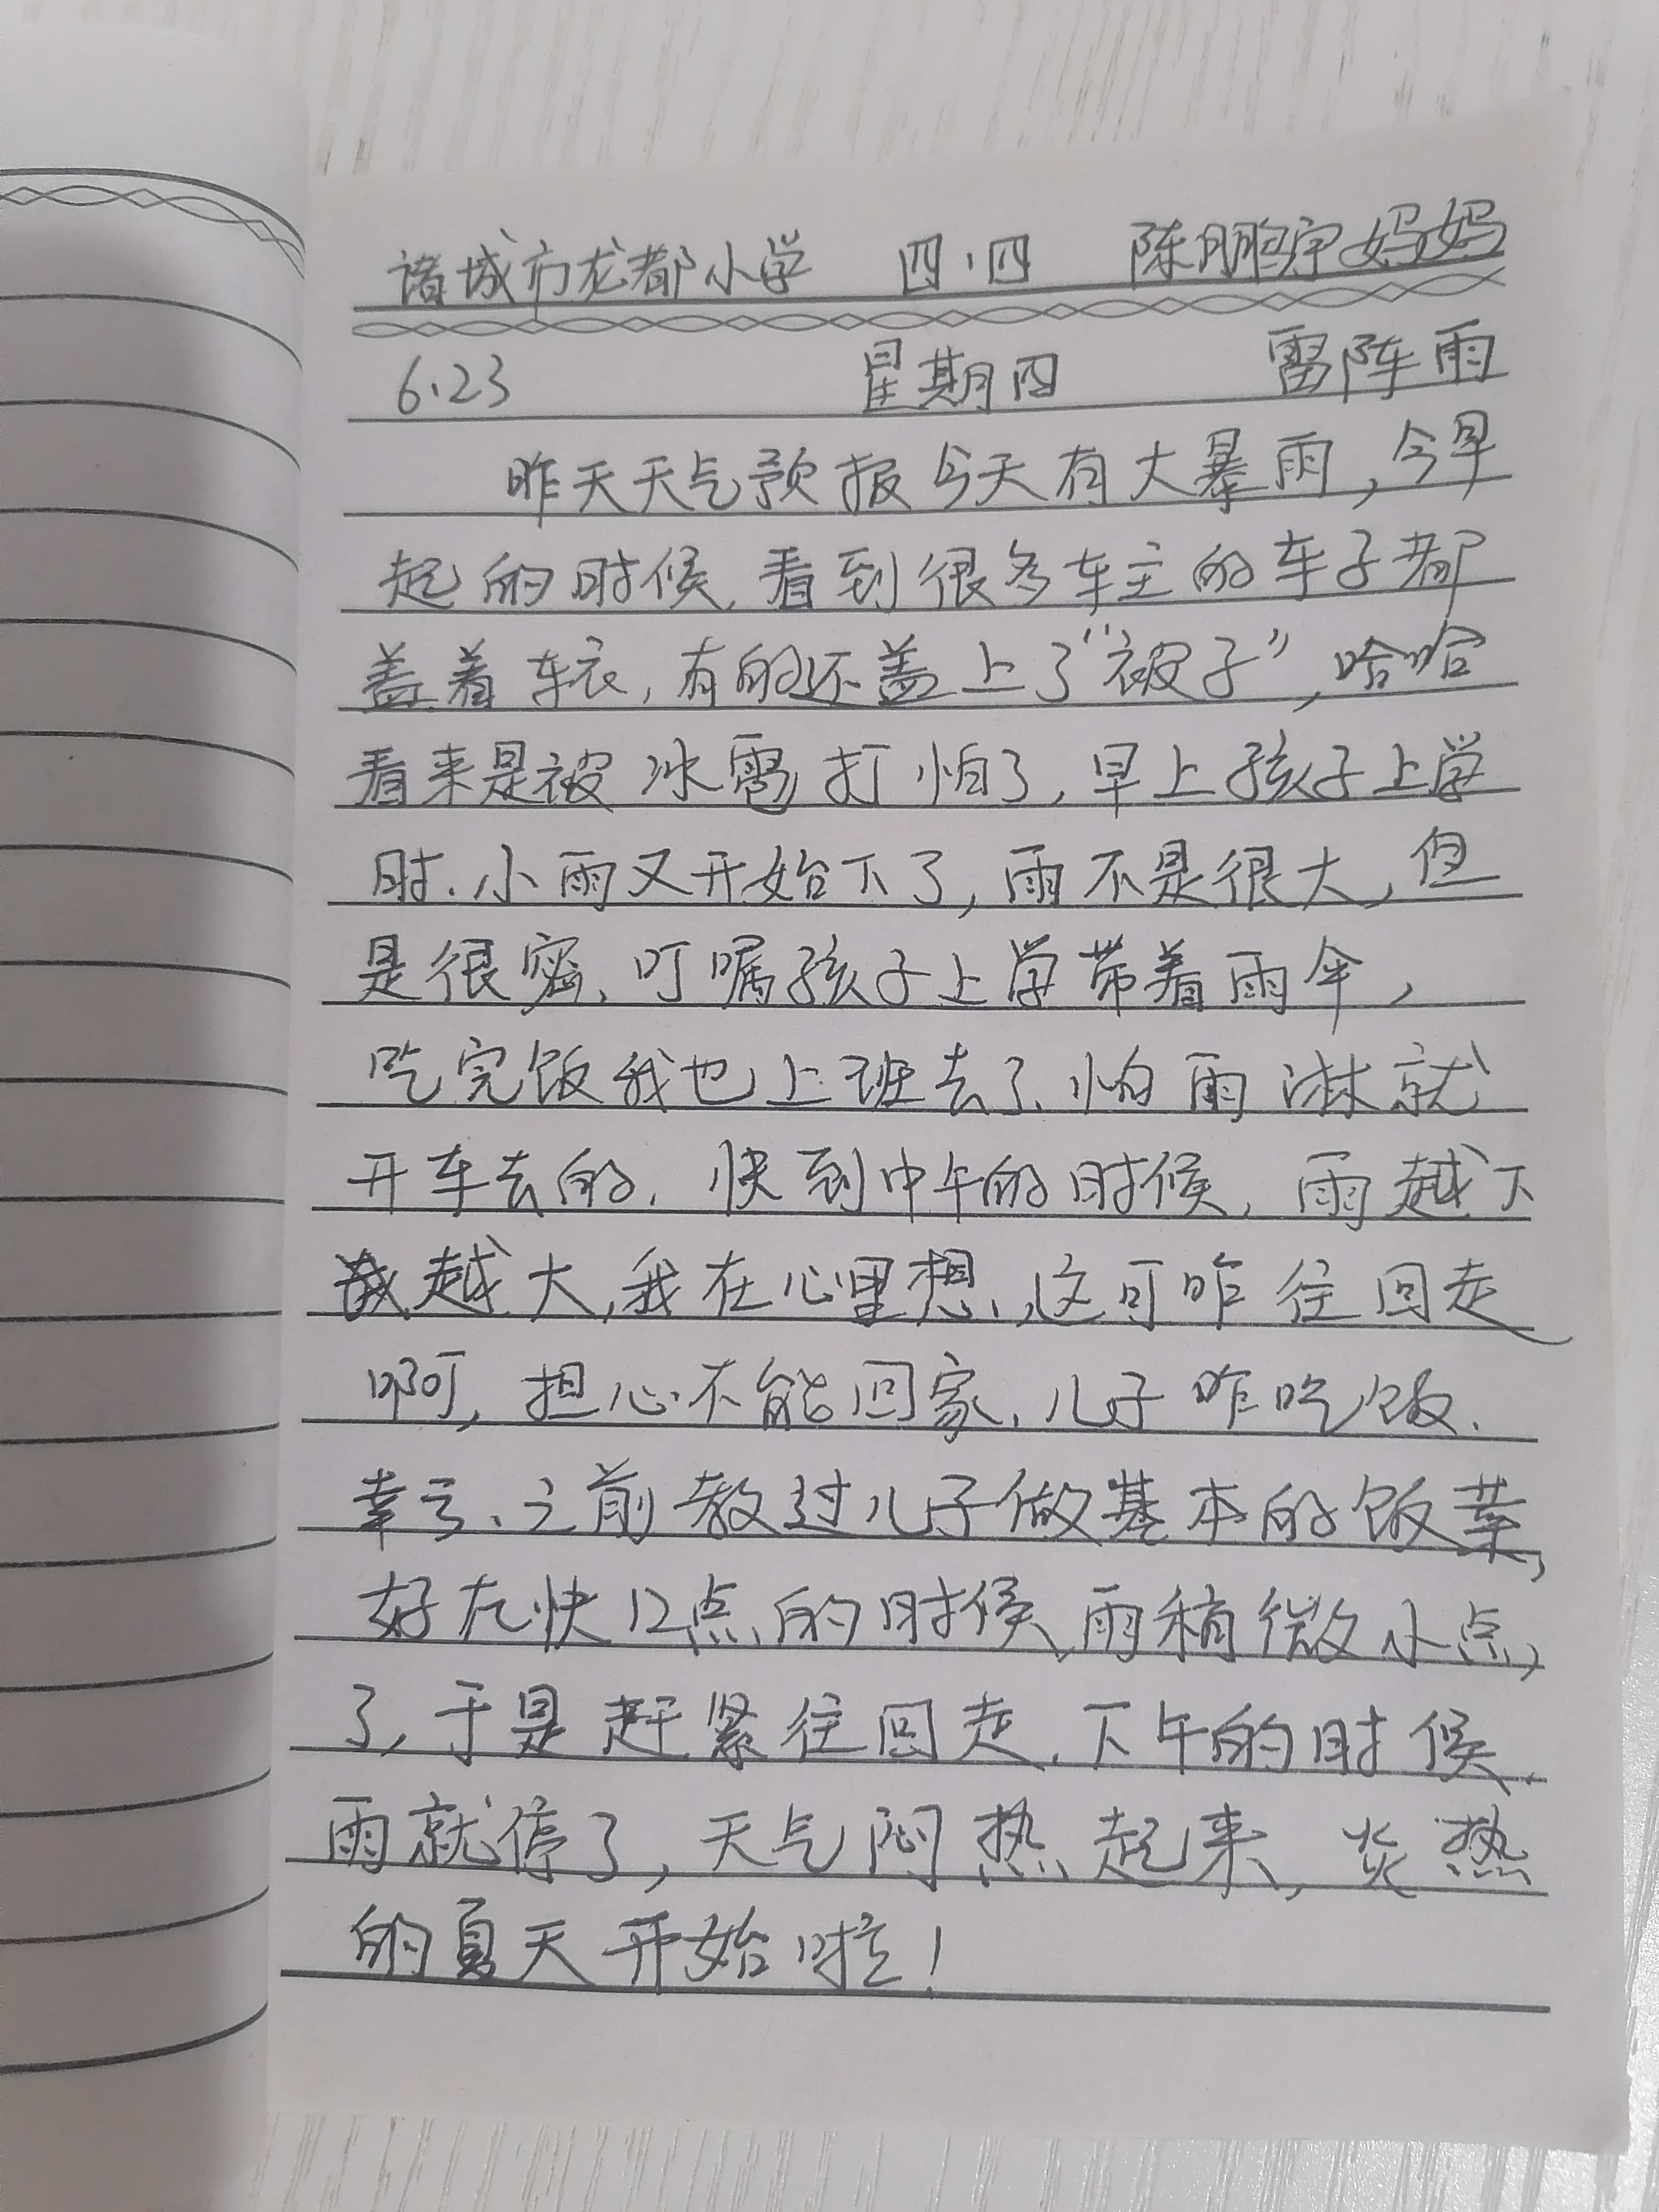 诸城市龙都小学 四.四 陈鹏宇妈妈
6.23 星期四 雷阵雨
昨天天气预报今天有大暴雨,今早
起的时候,看到很多车主的车子都
盖着车衣,有的还盖上了“被子”,哈哈
看来是被冰雹打怕了,早上孩子上学
时.小雨又开始下了,雨不是很大,但
是很密、叮嘱孩子上学带着雨伞,
吃完饭我也上班去了、怕雨淋就
开车去的.快到中午的时候,雨越下
越大,我在心里想,这可咋往回走
啊,担心不能回家,儿子咋吃饭.
幸亏、之前教过儿子做基本的饭菜,
好在快12点的时候,雨稍微小点,
了,于是赶紧往回走,下午的时候,
雨就停了,天气闷热起来,炎热
的夏天开始啦!